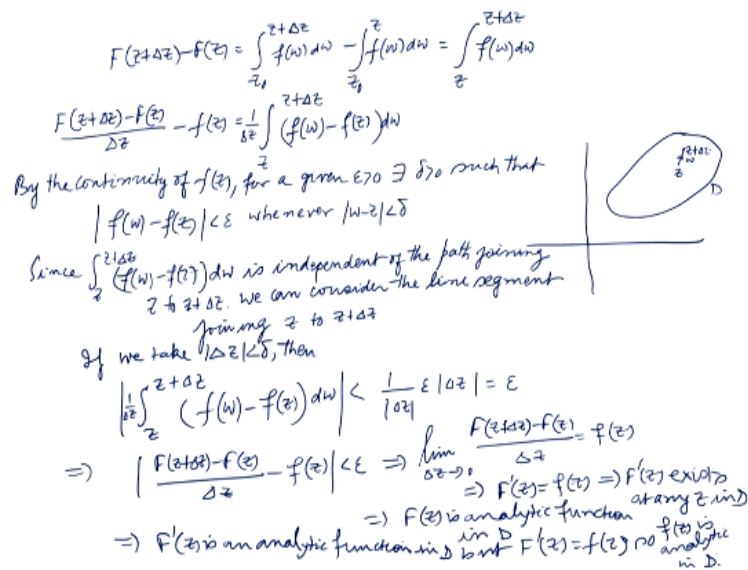 F(z+Δz)-f(z) = ∫_{z₀}^{z+Δz} f(w)dw - ∫_{z₀}^{z} f(w)dw = ∫_{z}^{z+Δz} f(w)dw
(F(z+Δz)-F(z))/Δz - f(z) = 1/Δz ∫_{z}^{z+Δz} (f(w)-f(z))dw
By the continuity of f(z), for a given ε>0 ∃ δ>0 such that
|f(w)-f(z)|<ε whenever |w-z|<δ
z+Δz
w
z
D
Since ∫_{z}^{z+Δz} (f(w)-f(z))dw is independent of the path joining
z to z+Δz. we can consider the line segment
joining z to z+Δz
If we take |Δz|<δ, then
|1/Δz ∫_{z}^{z+Δz} (f(w)-f(z))dw| < 1/|Δz| ε|Δz| = ε
⇒ |(F(z+Δz)-F(z))/Δz - f(z)|<ε ⇒ lim_{Δz→0} (F(z+Δz)-F(z))/Δz = f(z)
⇒ F'(z)=f(z) ⇒ F'(z) exists
at any z in D
⇒ F(z) is analytic function
in D
⇒ F'(z) is an analytic function in D but F'(z)=f(z) so f(z) is
analytic
in D.